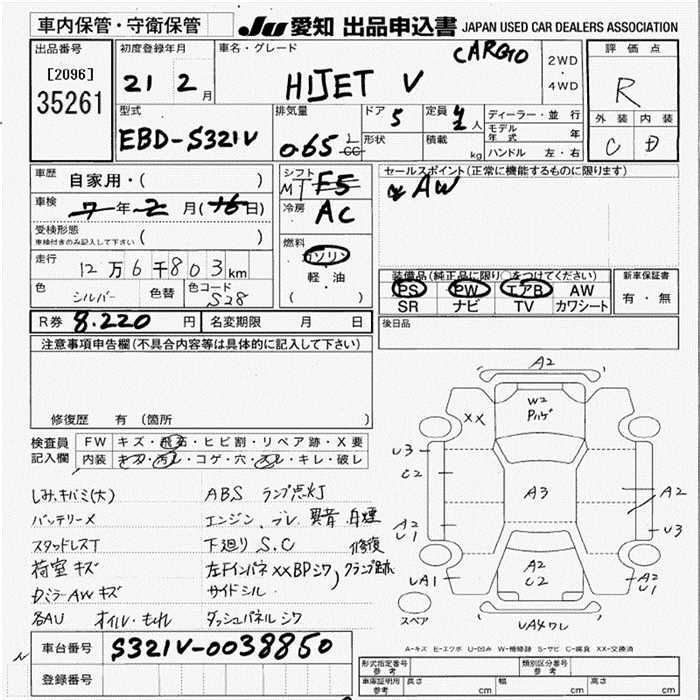 車内保管・守衛保管
JU 愛知 出品申込書 JAPAN USED CAR DEALERS ASSOCIATION
出品番号
[2096]
35261
初度登録年月
21 2 月
車名・グレード
HIJET V
CARGO
2WD
・
4WD
評価点
R
外装 内装
C D
型式
EBD-S321V
排気量
065 L
CC
ドア 5
形状
定員 4 人
積載 kg
ディーラー・並行
モデル年式 年
ハンドル 左・右
車歴 自家用・( )
車検 7年2月(16日)
受検形態
車検付きのみ記入して下さい ( )
走行 12万6千803km
色 シルバー 色替 色コード S28
シフト MT F5
冷房 AC
燃料
ガソリン
軽・油
( )
セールスポイント(正常に機能するものに限ります)
AW
装備品(純正品に限り○をつけてください)
PS PW エアB AW
SR ナビ TV カワシート
新車保証書
有・無
後日品
R券 8.220 円 名変期限 月 日
注意事項申告欄(不具合内容等は具体的に記入して下さい)
修復歴 有 (箇所 )
検査員
記入欄
FW キズ・飛石・ヒビ割・リペア跡・X要
内装 キズ・汚レ・コゲ・穴・スレ・キレ・破レ
しみ、キバミ(大) ABS ランプ点灯
バッテリーX エンジン、ブレ、異音、白煙
スタッドレスT 下廻り S.C 修復
荷室 キズ 左Fインパネ XXBPシワ, クランプ跡
AW キズ サイドシル
各AU オイル・もれ ダッシュパネル シワ
車台番号 S321V-0038850
登録番号
A2
W2
XX
U3
C2
A3
A2
U3
A2
U1
A2
C2
UA1
A2
U1
スペア
UA4ワレ
A-キズ E-エクボ U-凹み W-補修跡 S-サビ C-腐食 XX-交換済
形式指定番号
参考
類別区分番号
参考
車庫証明用
参考
長さ cm 幅 cm 高さ cm